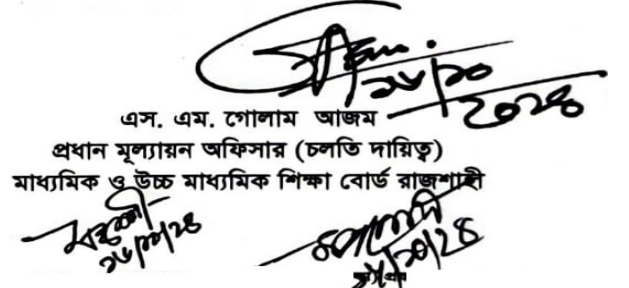 ১৬/১০
২০২৪
এস. এম. গোলাম আজম
প্রধান মূল্যায়ন অফিসার (চলতি দায়িত্ব)
মাধ্যমিক ও উচ্চ মাধ্যমিক শিক্ষা বোর্ড রাজশাহী
১৬/১০/২৪
১৬/১০/২৪